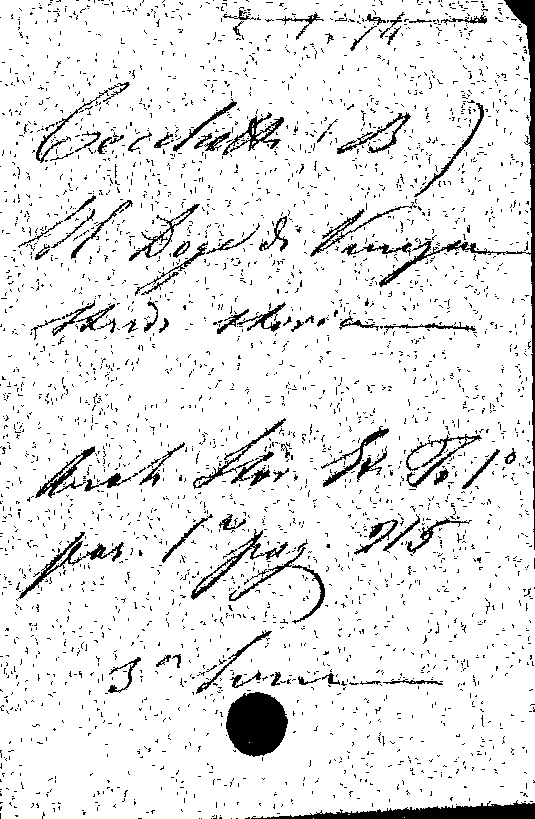 Cecchetti (B)
Il Doge di Venezia
Studi storici
Arch. Stor. It. To. 1º
par. 1ª pag. 215
3ª Serie